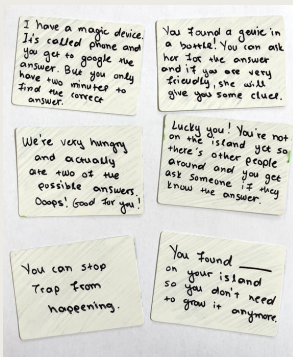 I have a magic device.
It's called phone and
you get to google the
answer. But you only
have two minutes to
find the correct
answer.
You found a genie in
a bottle! You can ask
her for the answer
and if you are very
friendly, she will
give you some clues.
We're very hungry
and actually
ate two of the
possible answers.
Ooops! Good for you!
Lucky you! You're not
on the island yet so
there's other people
around and you get
ask someone if they
know the answer.
You can stop
Trap from
happening.
You found ____
on your island
so you don't need
to grow it anymore.